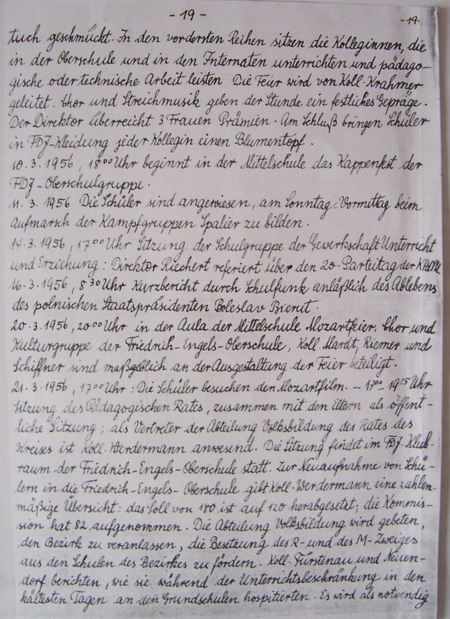 - 19 -
-19-
tuch geschmückt. In den vordersten Reihen sitzen die Kolleginnen, die
in der Oberschule und in den Internaten unterrichten und pädago-
gische oder technische Arbeit leisten. Die Feier wird von Koll. Krahmer
geleitet. Chor und Streichmusik geben der Stunde ein festliches Gepräge.
Der Direktor überreicht 3 Frauen Prämien. Am Schluß bringen Schüler
in FDJ-Kleidung jeder Kollegin einen Blumentopf.
10.3.1956, 18⁰⁰ Uhr beginnt in der Mittelschule das Kappenfest der
FDJ-Oberschulgruppe.
11.3.1956 Die Schüler sind angewiesen, am Sonntag-Vormittag beim
Aufmarsch der Kampfgruppen Spalier zu bilden.
14.3.1956, 17⁰⁰ Uhr Sitzung der Schulgruppe der Gewerkschaft Unterricht
und Erziehung: Direktor Riechert referiert über den 20. Parteitag der
16.3.1956, 8³⁰ Uhr Kurzbericht durch Schulfunk anläßlich des Ablebens
des polnischen Staatspräsidenten Boleslav Bierut.
20.3.1956, 20⁰⁰ Uhr in der Aula der Mittelschule Mozartfeier. Chor und
Kulturgruppe der Friedrich-Engels-Oberschule, Koll. Mardt, Riemer und
Schiffner sind maßgeblich an der Ausgestaltung der Feier beteiligt.
21.3.1956, 13⁰⁰ Uhr: Die Schüler besuchen den Mozartfilm. - 17⁰⁰-19¹⁵ Uhr
Sitzung des Pädagogischen Rates, zusammen mit den Eltern als öffent-
liche Sitzung; als Vertreter der Abteilung Volksbildung des Rates des
Kreises ist Koll. Werdermann anwesend. Die Sitzung findet im FDJ-Klub-
raum der Friedrich-Engels-Oberschule statt. Zur Neuaufnahme von Schü-
lern in die Friedrich-Engels-Oberschule gibt Koll. Werdermann eine zahlen-
mäßige Übersicht: das Soll von 180 ist auf 120 herabgesetzt; die Kommis-
sion hat 82 aufgenommen. Die Abteilung Volksbildung wird gebeten,
den Bezirk zu veranlassen, die Besetzung des R- und des M-Zweiges
aus den Schulen des Bezirkes zu fördern. Koll. Fürstenau und Neuen-
dorf berichten, wie sie während der Unterrichtsbeschränkung in den
kältesten Tagen an den Grundschulen hospitierten. Es wird als notwendig